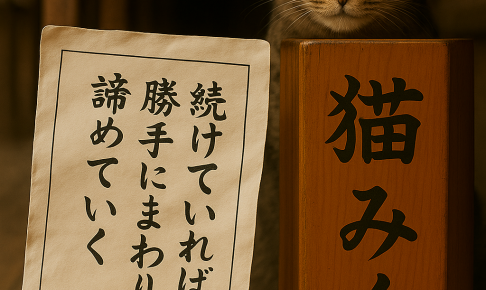 続けていれば
勝手にまわり
諦めていく
猫み